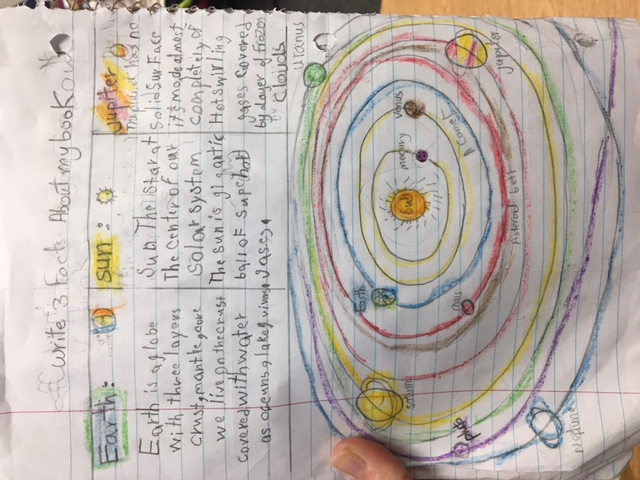 write 3 Facts About my book
Earth:
Earth is a globe
with three layers
crust, mantle, core
we live on the crust
covered with water
as oceans, lakes,
Sun:
Sun. The Star at
The center of our
Solar System
The sun is gigantic
ball of superhot
gases.
Jupiter
The planet has no
Solid Surface
it's made almost
completely of
Hot swirling
gases covered
by a layer of frozen
Clouds
Uranus
Jupiter
Venus
Comet
Sun
Astoroid belt
Earth
Mars
Saturn
Neptune